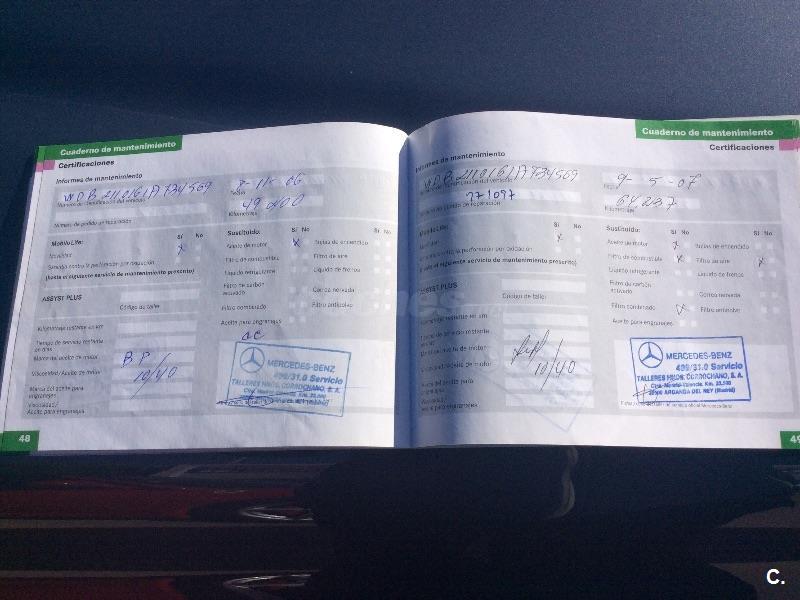 Cuaderno de mantenimiento
Certificaciones
Informes de mantenimiento
8-11-06
Número de identificación del vehículo
Fecha
49000
Número de pedido de reparación
Kilometraje
Mobilo Life:
Sí No
Movilidad
x
Garantía contra la perforación por oxidación
(hasta el siguiente servicio de mantenimiento prescrito)
ASSYST PLUS
Código de taller
Kilometraje restante en km
Tiempo de servicio restante
en días
Marca del aceite de motor
B.P.
Viscosidad/Aceite de motor
10/40
Marca del aceite para
engranajes
Viscosidad/
Aceite para engranajes
Sustituido:
Sí No
Sí No
Aceite de motor
x
Bujías de encendido
Filtro de combustible
Filtro de aire
Líquido refrigerante
Líquido de frenos
Filtro de carbón
activado
Correa nervada
Filtro combinado
Filtro antipolvo
Aceite para engranajes
MERCEDES-BENZ
499/31.0 Servicio
TALLERES HNOS. CORROCHANO, S. A.
48
Cuaderno de mantenimiento
Certificaciones
Informes de mantenimiento
9-5-07
771097
Fecha
64237
Kilometraje
x
(hasta el siguiente servicio de mantenimiento prescrito)
ASSYST PLUS
Código de taller
10/40
Sustituido:
Sí No
Sí No
Aceite de motor
x
Bujías de encendido
Filtro de combustible
x
Filtro de aire
x
Líquido refrigerante
Líquido de frenos
Filtro de carbón
activado
Correa nervada
Filtro combinado
Filtro antipolvo
Aceite para engranajes
MERCEDES-BENZ
499/31.0 Servicio
TALLERES HNOS. CORROCHANO, S. A.
Ctra. Madrid-Valencia, Km. 23,500
28500 ARGANDA DEL REY (Madrid)
49
C.